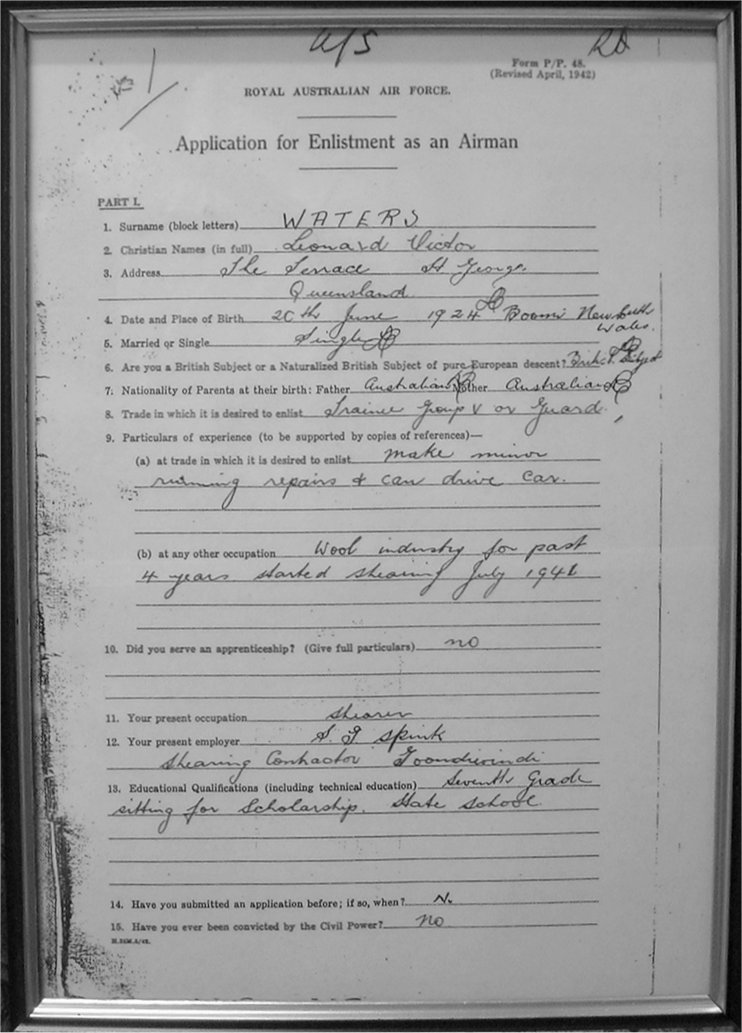 A/S RD
Form P/P. 48.
(Revised April, 1942)
ROYAL AUSTRALIAN AIR FORCE.
Application for Enlistment as an Airman
PART I.
1. Surname (block letters) WATERS
2. Christian Names (in full) Leonard Victor
3. Address The Terrace St George.
Queensland
4. Date and Place of Birth 20th June 1924 Boomi New South
Wales.
5. Married or Single Single
6. Are you a British Subject or a Naturalized British Subject of pure European descent?
7. Nationality of Parents at their birth: Father Australian Mother Australian
8. Trade in which it is desired to enlist Trainee Group V or Guard.
9. Particulars of experience (to be supported by copies of references)—
(a) at trade in which it is desired to enlist make minor
running repairs & can drive car.
(b) at any other occupation Wool industry for past
4 years started shearing July 1941
10. Did you serve an apprenticeship? (Give full particulars) no
11. Your present occupation shearer
12. Your present employer Spink
Shearing Contractor Goondiwindi
13. Educational Qualifications (including technical education) Seventh Grade
sitting for Scholarship. State School.
14. Have you submitted an application before; if so, when? No
15. Have you ever been convicted by the Civil Power? no